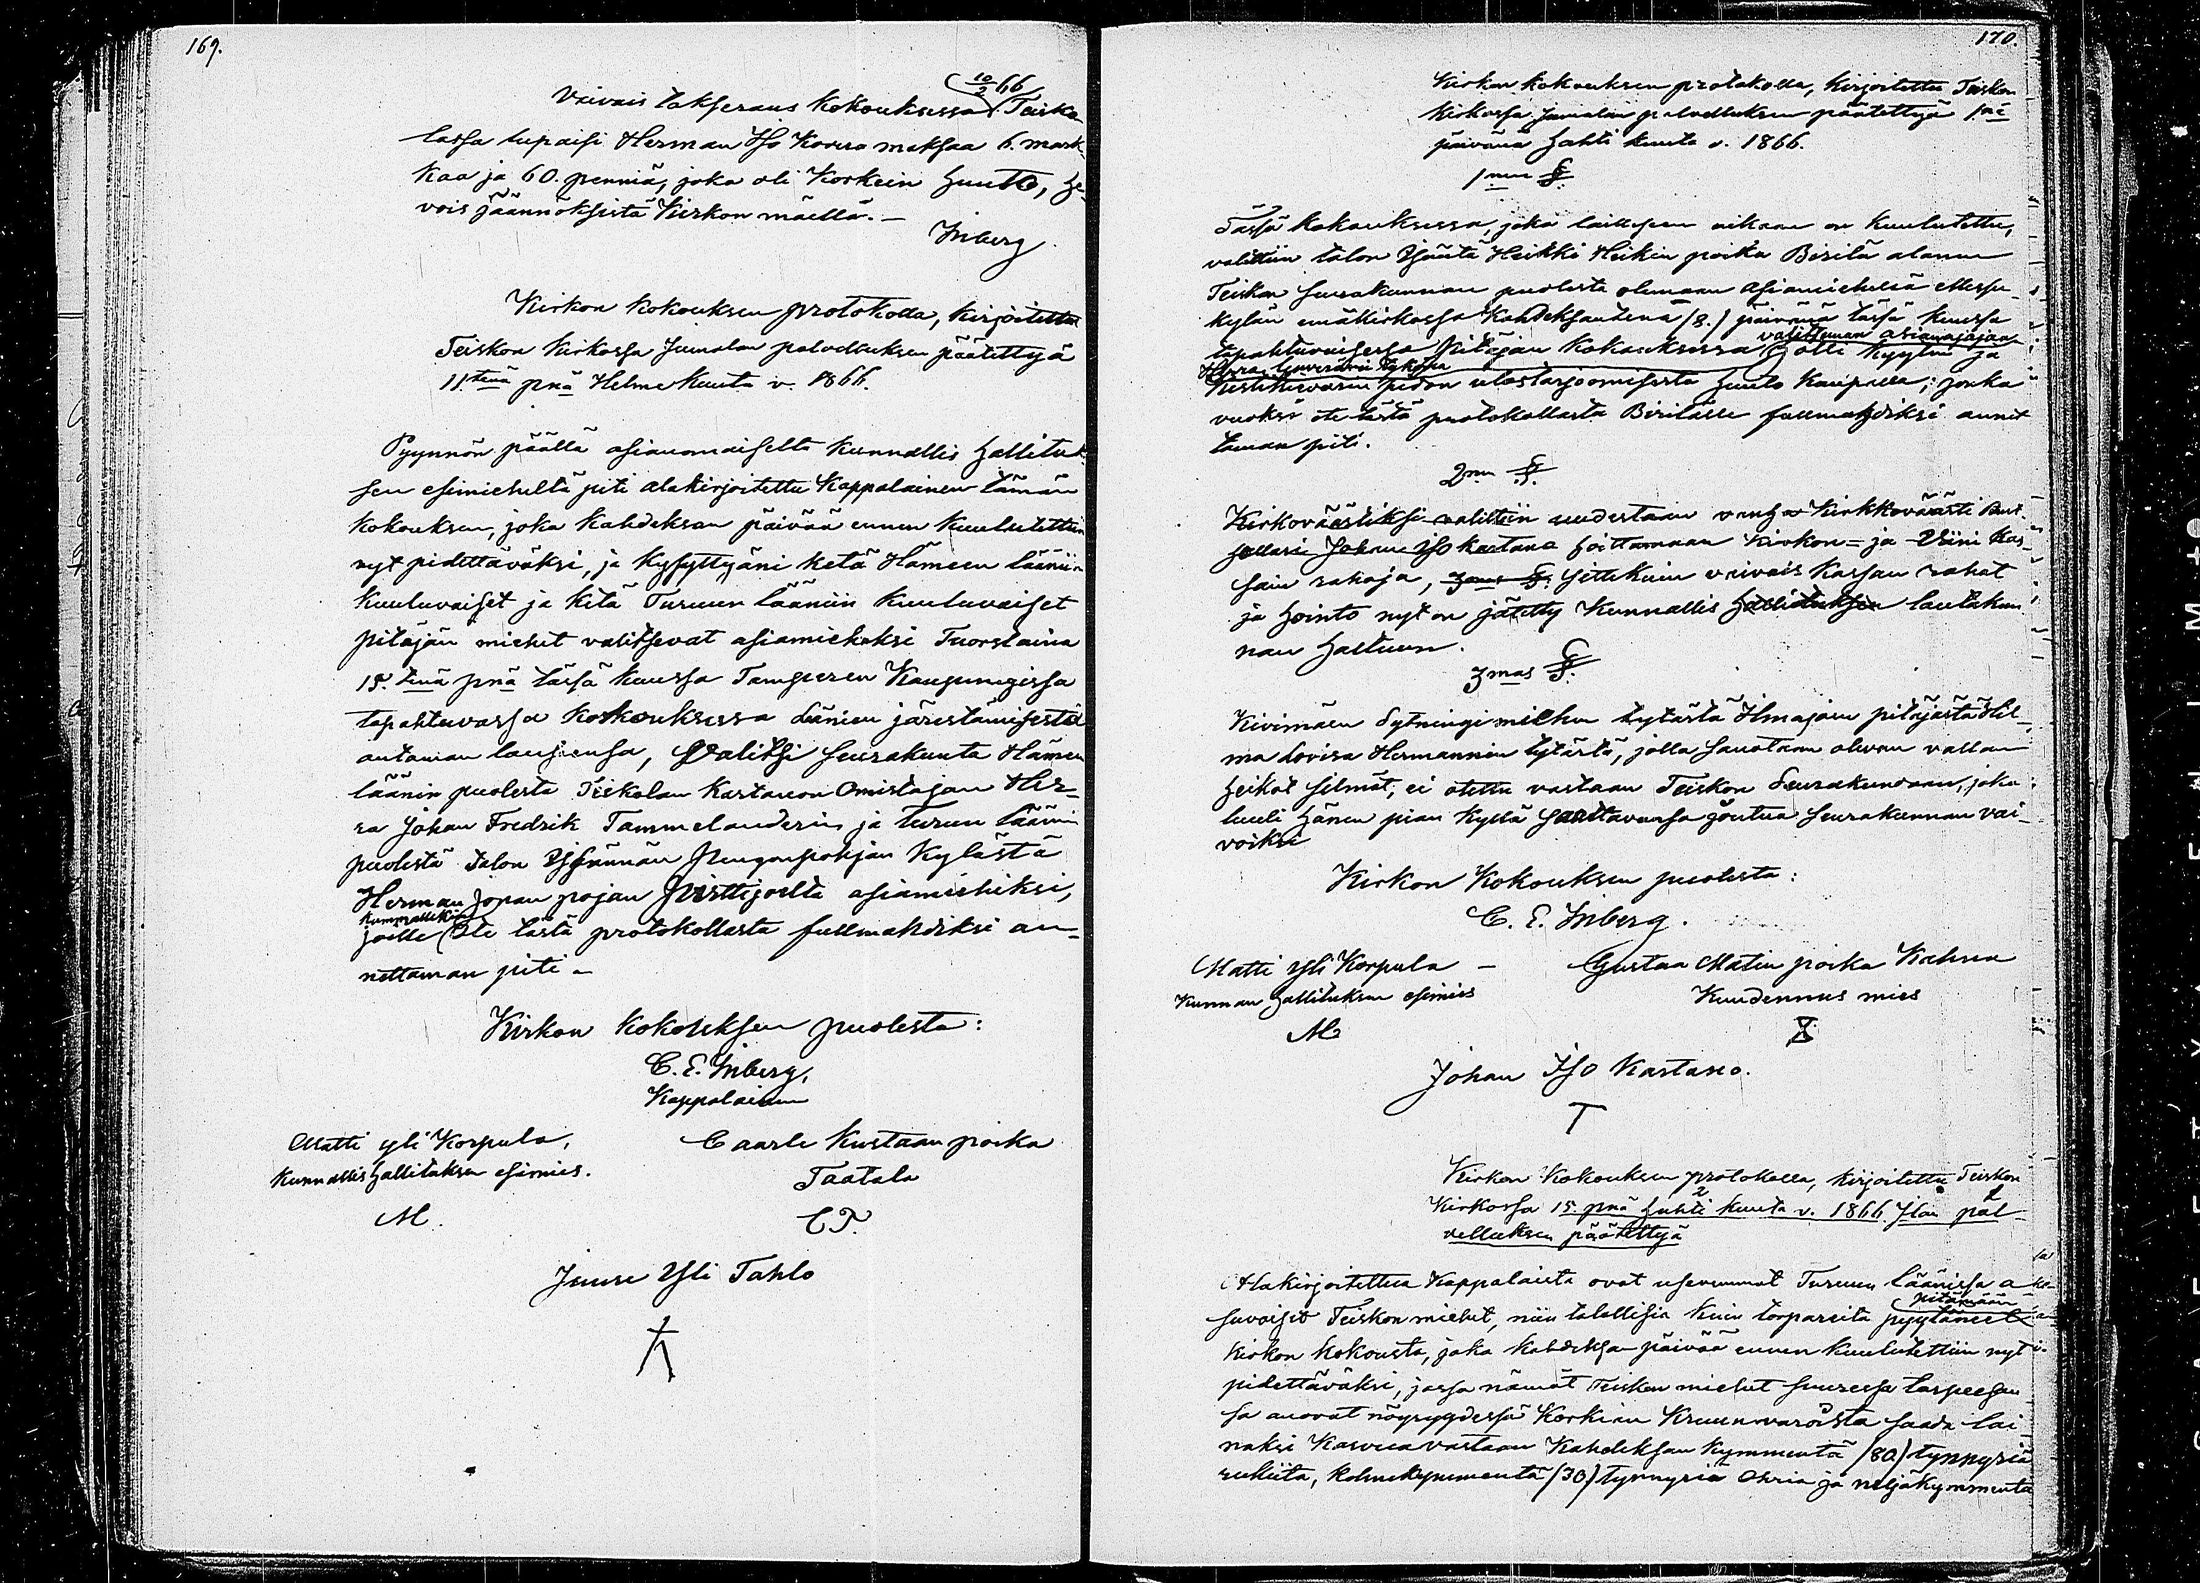 169.
10/2 66
Vaivais takseraus kokouksessa Teisko
lassa lupaisi Herman Iso Kovero maksaa 6. mark-
kaa ja 60. penniä, joka oli korkein huuto, he-
vois jäännöksistä Kirkon mäellä. –
Inberg.
Kirkon kokouksen protokolla, kirjoitettu
Teiskon kirkossa Jumalan palvelluksen päätettyä
11.tenä pnä Helmekuuta v. 1866.
Pyynnön päällä asianomaiselta kunnallis hallituk-
sen esimieheltä piti alakirjoitettu Kappalainen tämän
kokouksen, joka kahdeksan päivää ennen kuulutettiin
nyt pidettäväksi, ja kysyttyäni ketä Hämeen lääniin
kuuluvaiset ja ketä Turuun lääniin kuuluvaiset
pitäjän miehet valitsevat asiamieheksi Tuorstaina
15.tenä pnä tässä kuussa Tampereen Kaupungissa
tapahtuvassa kokouksessa Läänien järestämisestä
antaman lausunsa, Valitsi seurakunta Hämeen
läänin puolesta Teiskolan Kartanon Omistajan Her-
ra Johan Fredrik Tammelanderin ja Turun läänin
puolesta talon Isännän Pengonpohjan Kylästä
Herman Jopan pojan Pirttijoelta asiamieheksi,
kummallekin
joille Ote tästä protokollasta fullmahdiksi an-
nettaman piti –
Kirkon kokouksen puolesta:
C. E. Inberg,
Kappalainen
Matti yli Korpula,
kunnallis hallituksen esimies.
M.
Caarle Kustaan poika
Taatala
C T.
Juuse Yli Tahlo
170.
Kirkon kokouksen protokolla, kirjoitettu Teiskon
kirkossa Jumalan palvelluksen päätettyä 1.nä
päivänä Huhti kuuta v. 1866.
1mu §.
Tässä kokouksessa, joka lailliseen aikaan on kuulutettu,
valittiin talon Isäntä Heikki Heikin poika Birilä alamen
Teiskon seurakunnan puolesta olemaan asiamiehenä Messu-
kylän emäkirkossa Kahdeksantena (8.) päivänä tässä kuussa
tapahtuvaisessa Pitäjän kokouksessa
valitseman asianajajaa
Herra Guvernörin tykönä
Kestikievarin pidon ulostarjoomisesta huuto kaupalla; jonka
vuoksi ote tästä protokollasta Birilälle fullmahdiksi annet
taman piti.
2nen §.
Kirkoväärtiksi valittiin uudestaan vanha Kirkkoväärti
Johan Iso kartano hoittamaan Kirkon= ja Viini kas-
sain rahoja, 3mas §. sittekuin vaivais kassan rahat
ja hointo nyt on jätetty Kunnallis hallituksen lautakun
nan haltuun.
3mas §.
Kivimäen Sytningi miehen tytärtä Ilmajoen pitäjästä Hil-
ma Lovisa Hermannin tytärtä, jolla sanotaan olevan vallan
heikot silmät, ei otettu vastaan Teiskon Seurakundaan, joka
luuli hänen pian kyllä saattavansa joutua seurakunnan vai-
voiksi
Kirkon Kokouksen puolesta:
C. E. Inberg.
Matti Yli Korpula –
Kunnan hallituksen esimies
M
Gustaa Matin poika Kahna
Kuudennus mies
Johan Iso Kartano.
Kirkon Kokouksen protokolla, kirjoitettu Teiskon
Kirkossa 15. pnä huhti kuuta v. 1866 Jlan pal-
velluksen päätettyä
Alakirjoitettua Kappalaista ovat usemmat Turuun läänissä a-
pitämään
suvaiset Teiskon miehet, niin talollisia kuin torpareita pyytäneet
kirkon kokousta, joka kahdeksan päivää ennen kuulutettiin nyt
pidettäväksi, jossa nämät Teiskon miehet suuressa tarpeesan
sa anovat nöyryydessä Korkian Kruunvaroista saada lai
naksi Kasvua vastaan Kahdeksan kymmentä (80) tynnyriä
rukiita, kolmekymmentä (30) tynnyriä Ohria ja neljäkymmentä